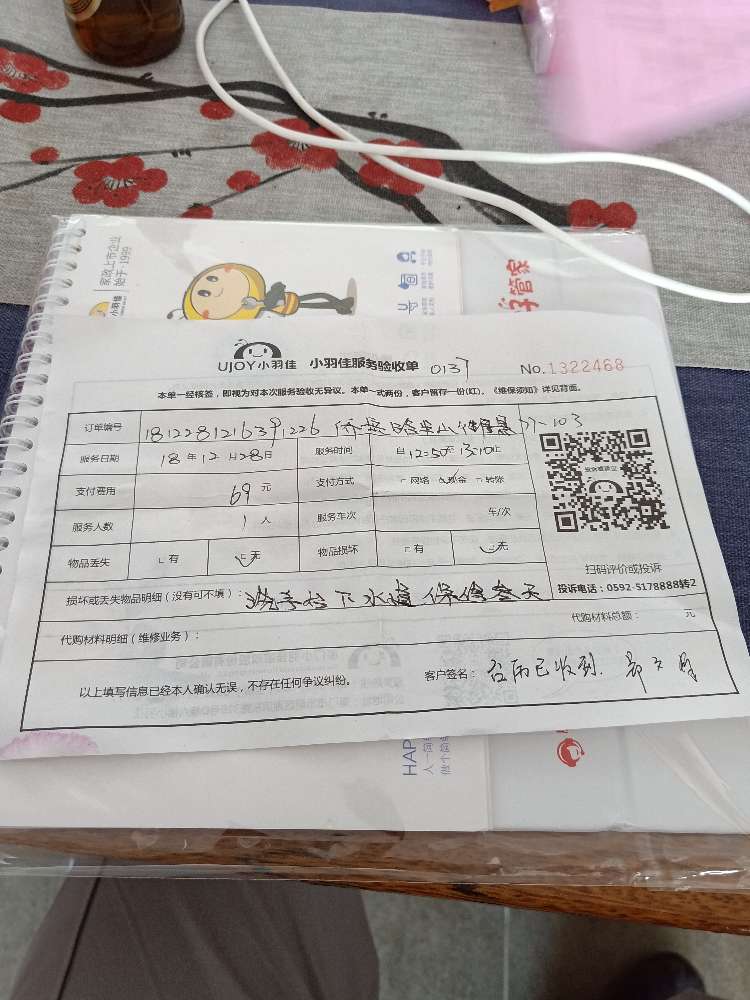 家政上市企业
始于·1999
小羽佳
管家
UJOY小羽佳 小羽佳服务验收单 0137 No.1322468
本单一经核签，即视为对本次服务验收无异议。本单一式两份，客户留存一份(红)。《维保须知》详见背面。
订单编号 1812281216391226 103
服务日期 18年12月28日 服务时间 自12:50至13:10止
支付费用 69元 支付方式 网络 现金 转账
服务人数 1人 服务车次 车/次
物品丢失 有 无 物品损坏 有 无
扫码评价或投诉
投诉电话：0592-5178888转2
损坏或丢失物品明细（没有可不填）：洗手柱下水道保修叁天
代购材料明细（维修业务）： 代购材料总额： 元
以上填写信息已经本人确认无误，不存在任何争议纠纷。 客户签名： 已收到.
HAP
人一
做个